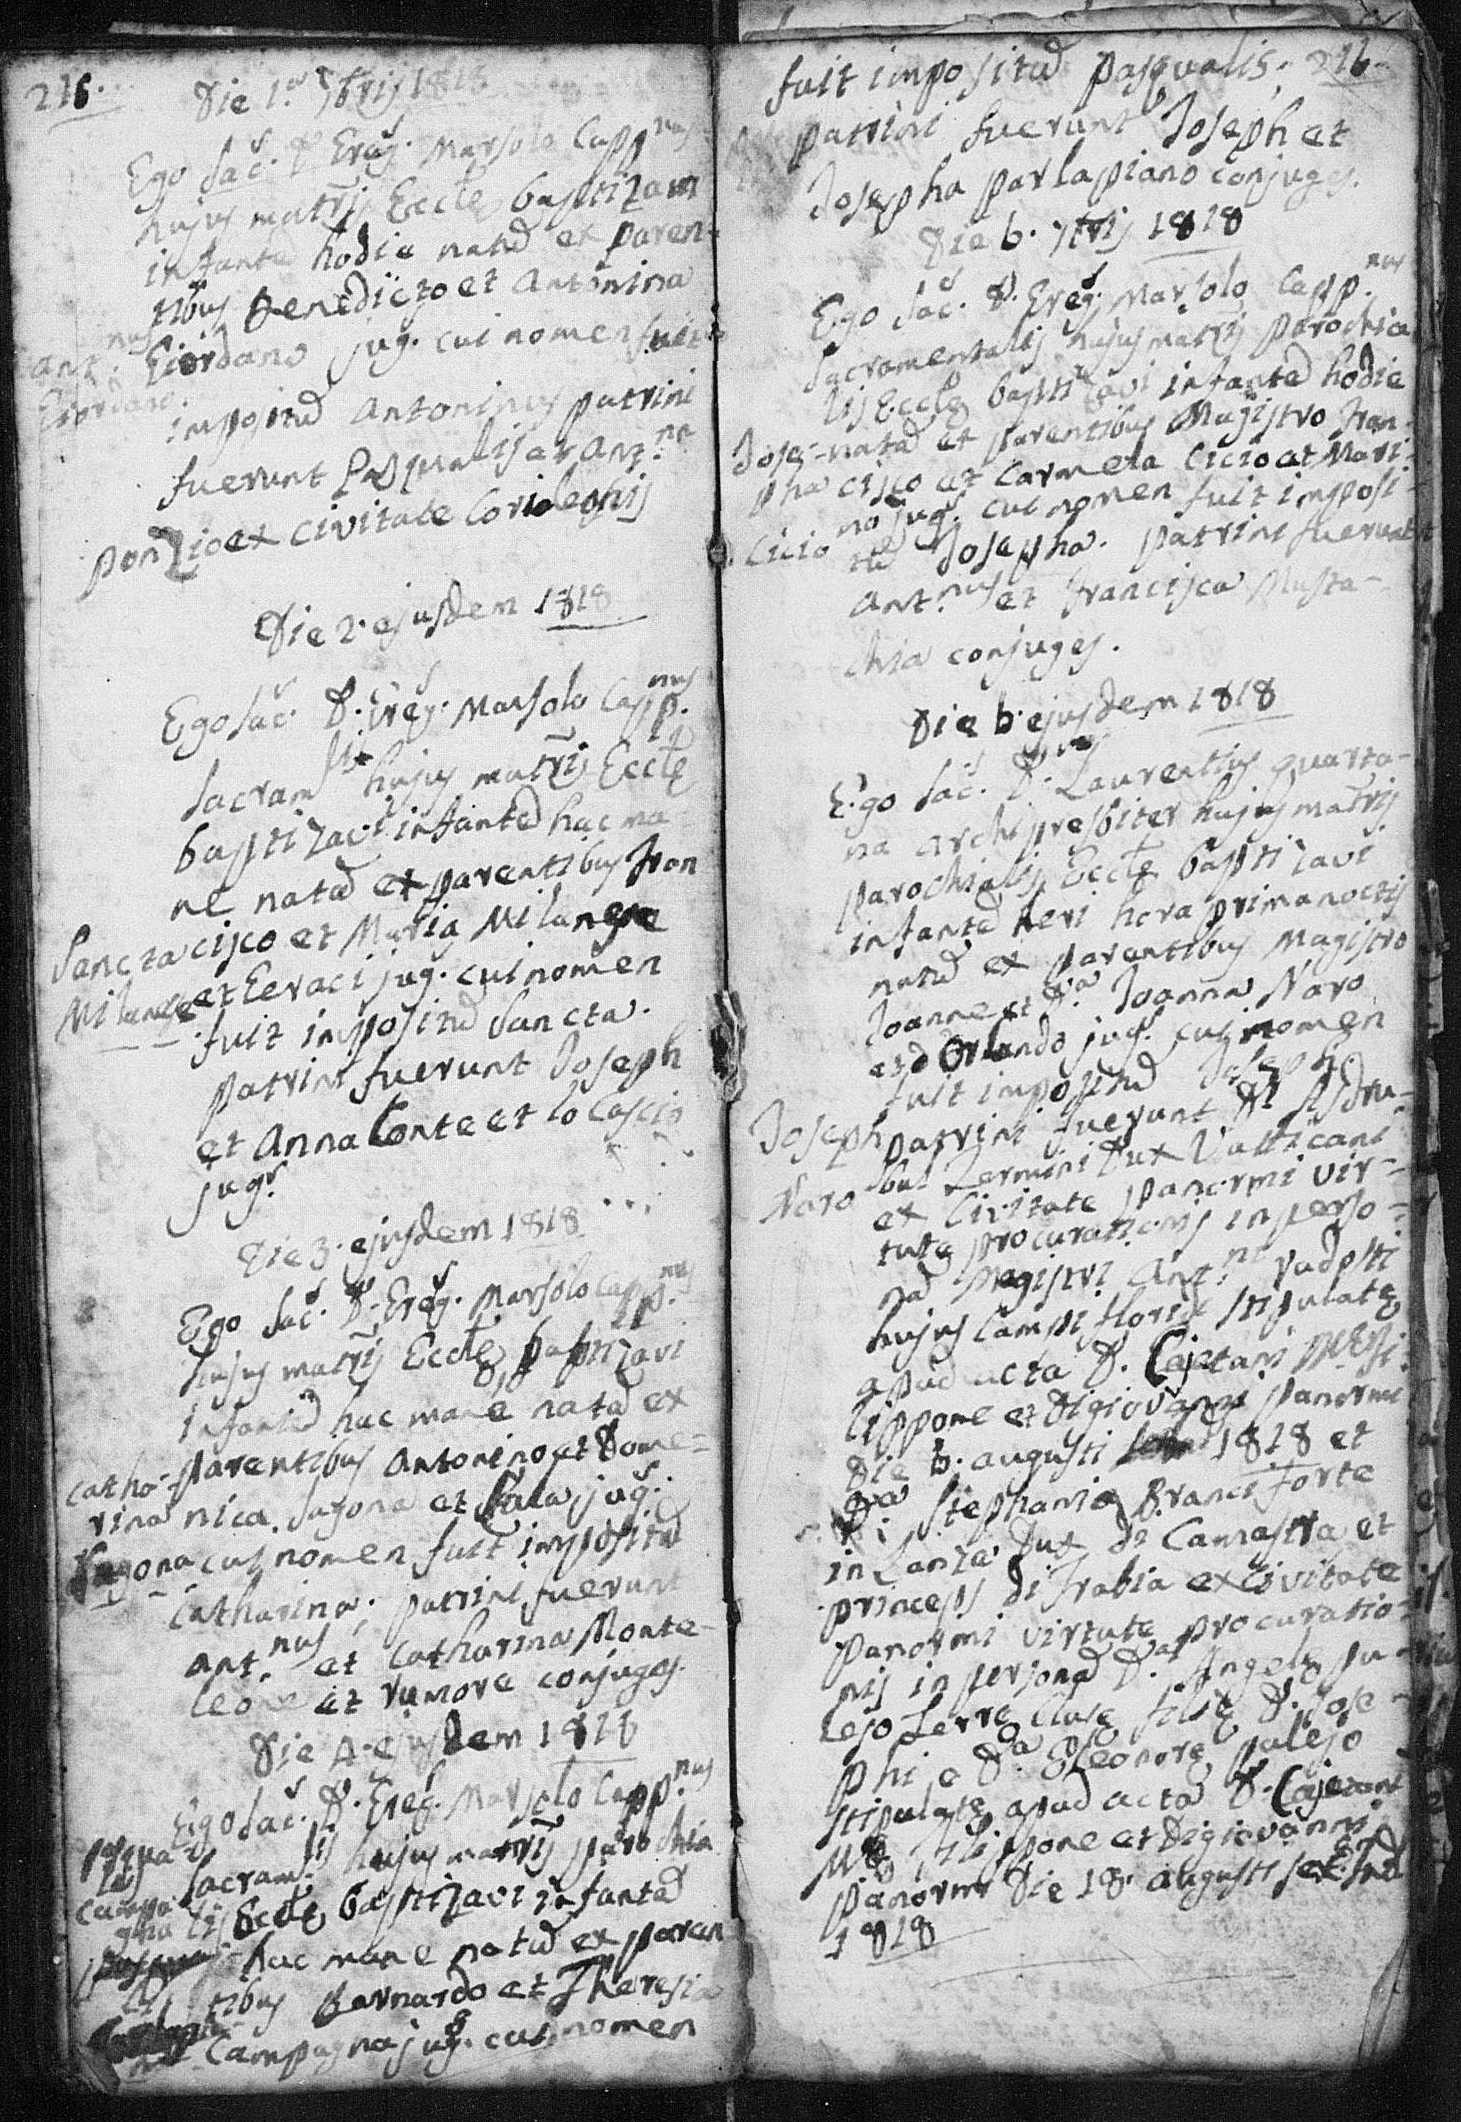 216.
Die 1.a 7bris 1818
Ego Sac. D. Greg. Marsolo Capp.nus
hujus matris Eccle baptizavi
infante hodie natu ex paren-
tibus Benedicto et Antonina
Ant.nus Giordano jug. cui nomen fuit
Giordano.
impositu Antoninus patrini
fuerunt Pasqualis et Ant.na
Ponzio ex Civitate Corioleonis
Die 2. ejusdem 1818
Ego Sac. D. Greg. Marsolo Capp.nus
Sacram.lis hujus matris Eccle
baptizavi infanted hac ma-
ne natad ex parentibus Fran
Sancta cisco et Maria Milanese
Milanese et Geraci jug. cui nomen
fuit impositu Sancta.
patrini fuerunt Joseph
et Anna Conte et lo Cascio
jug.
Die 3. ejusdem 1818
Ego Sac. D. Greg. Marsolo Capp.nus
hujus matris Eccle baptizavi
infanted hac mane natad ex
Catha- parentibus Antonino et Dome-
rina nica Sagona et Sala jug.
Sagona cui nomen fuit impositu
Catharina; patrini fuerunt
Ant.nus et Catharina Monte-
leone et rumore conjuges.
Die 4. ejusdem 1818
Ego Sac. D. Greg. Marsolo Capp.nus
Pasqua-
lis Sacram.lis hujus matris parochia
Campa-
gna lis Eccle baptizavi infanted
hac mane natu ex paren
tibus Bernardo et Theresia
Campagna jug. cui nomen
fuit impositu Pasqualis. 216.
patrini fuerunt Joseph et
Josepha parlapiano conjuges.
Die 6. 7bris 1818
Ego Sac. D. Greg. Marsolo Capp.nus
Sacramentalis hujus matris parochia
lis Eccle baptizavi infanted hodie
Jose- natad ex parentibus Magistro Fran-
pha cisco et Carmela Cicio et Mari-
Cicio no jug. cui nomen fuit imposi-
tu Josepha. patrini fuerunt
Ant.nus et Francisca Musta-
chia conjuges.
Die 6. ejusdem 1818
Ego Sac. D. Laurentius quarta-
na archipresbiter hujus matris
parochialis Eccle baptizavi
infanted heri hora prima noctis
natu ex parentibus Magistro
Joanne et D.a Joanna Naro
et d Orlando jug. cui nomen
fuit impositu Joseph
Joseph patrini fuerunt D. Asdru-
Naro bal Termini Dux Vatticani
ex Civitate panormi vir-
tute procurationis in perso-
nad Magistri Ant.ni
hujus Campi floris stipulate
apud acta D. Cajetani
lippone et Digiovanni panormi
Die 6. augusti 1818 et
D.a Stephania Branciforte
in Lanza Dux di Camastra et
princeps di Trabia ex Civitate
panormi virtute procuratio-
nis in personad D.a Angele pu-
lejo Terre Cluse filie D. Jose-
phi e D.a Eleonore pulejo
stipulate apud acta D. Cajetani
M.a Filippone et Digiovanni
panormi Die 18. augusti
1818